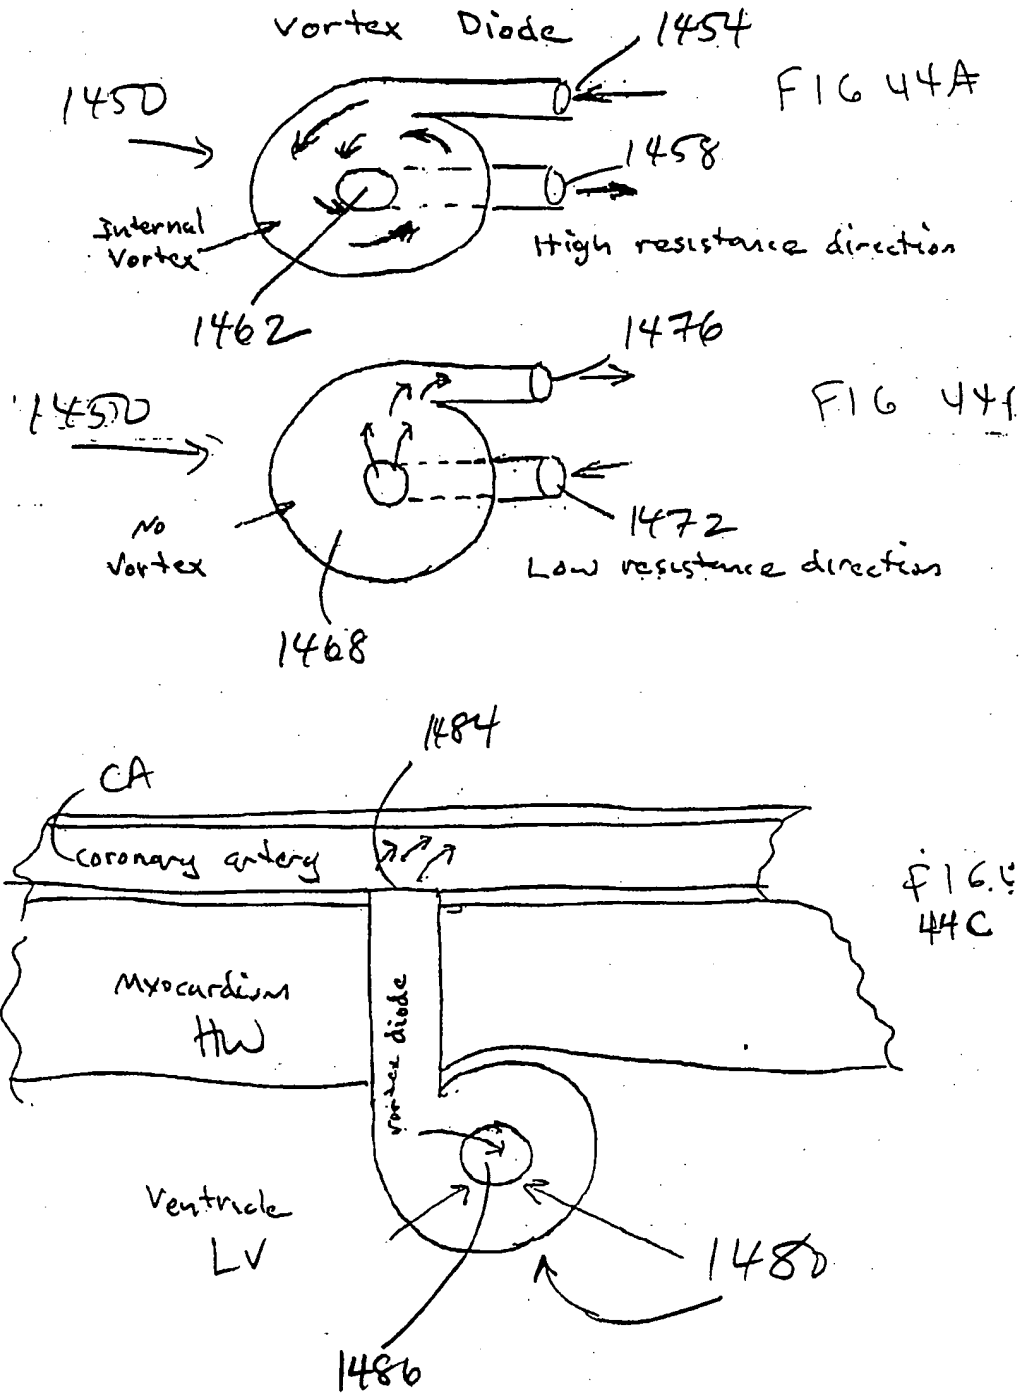 Vortex Diode
1454
FIG 44A
1450
1458
Internal
Vortex
High resistance direction
1462
1476
1450
FIG 44
1472
No
Vortex
Low resistance direction
1468
1484
CA
coronary artery
FIG.
44C
Myocardium
HW
vortex diode
Ventricle
LV
1480
1486